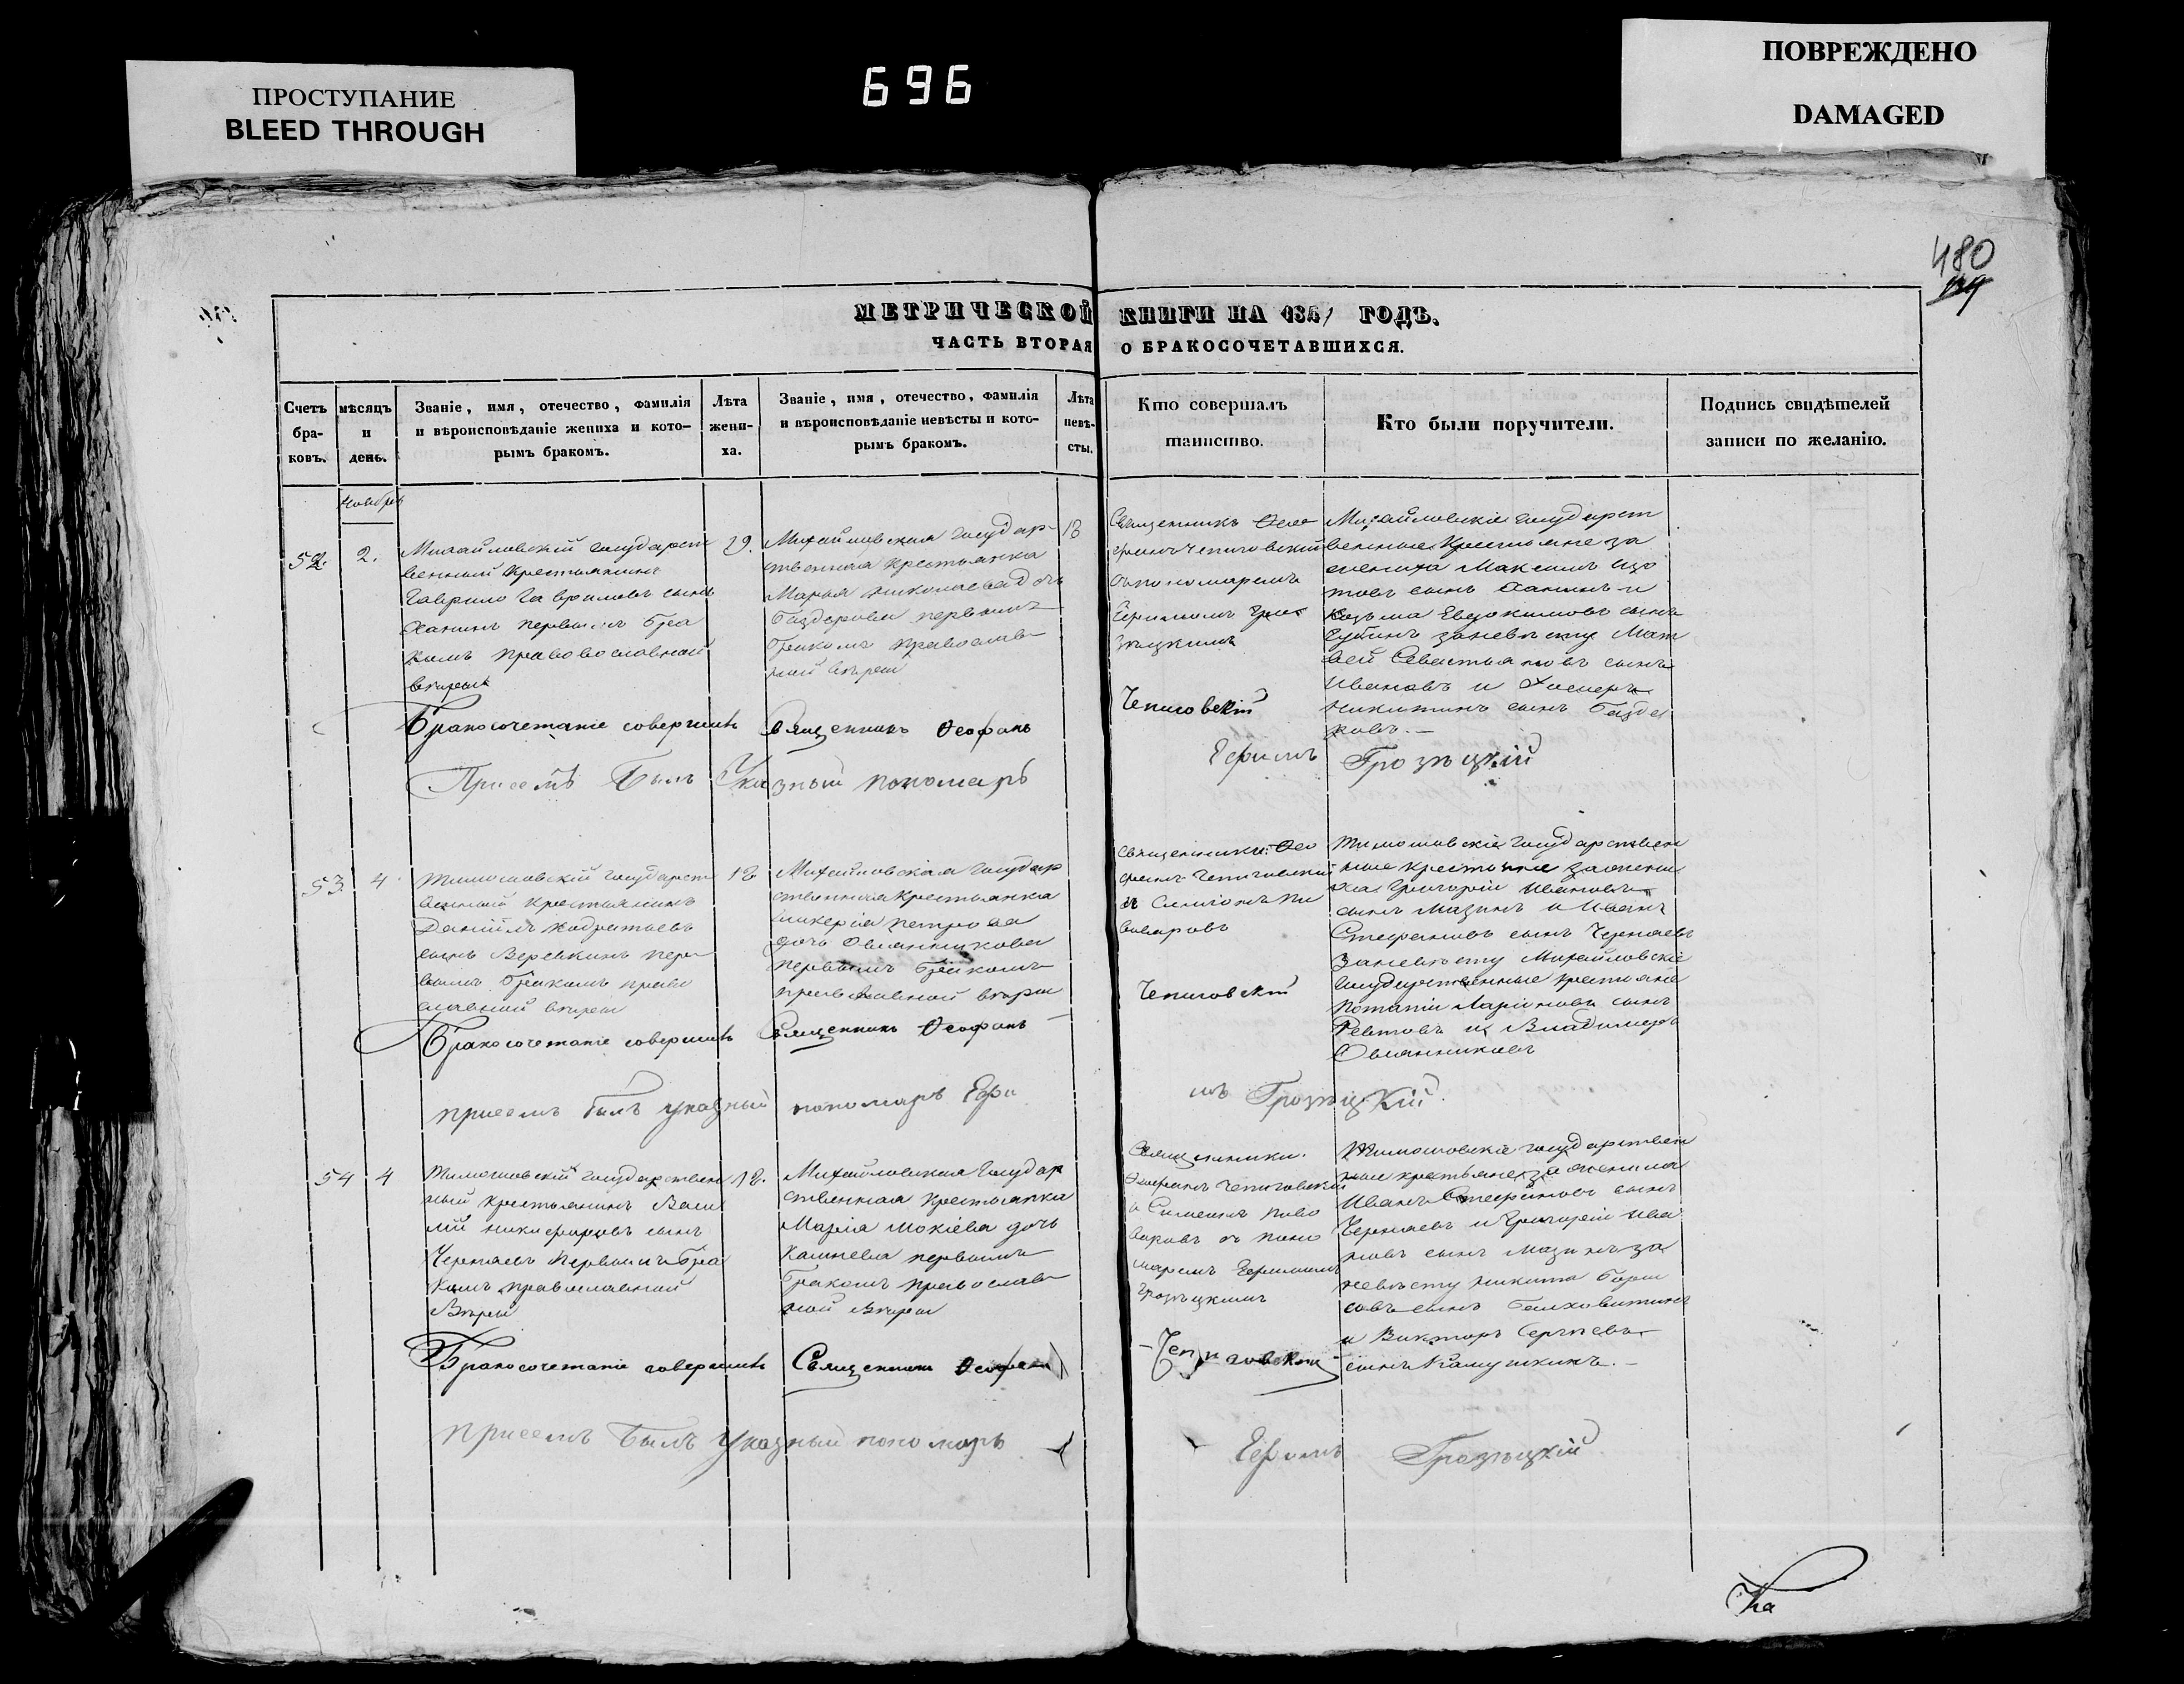 ПРОСТУПАНИЕ
BLEED THROUGH
696
ПОВРЕЖДЕНО
DAMAGED
480
МЕТРИЧЕСКОЙ КНИГИ НА 184 ГОДЪ.
ЧАСТЬ ВТОРАЯ О БРАКОСОЧЕТАВШИХСЯ.
Счетъ бра-ковъ.
мѣсяцъ и день.
Званіе, имя, отечество, фамилія
и вѣроисповѣданіе жениха и кото-
рымъ бракомъ.
Лѣта
жени-
ха.
Званіе, имя, отечество, фамилія
и вѣроисповѣданіе невѣсты и кото-
рымъ бракомъ.
Лѣта
невѣ-
сты.
Кто совершалъ
таинство.
Кто были поручители.
Подпись свидѣтелей
записи по желанію.
Ноябрь
52.
2.
Михайловскій государст
венный Крестьянинъ
Гаврило Гавриловъ сынъ
Ханинъ первымъ бра
комъ православной
вѣры
19.
Михайловская государ-
ственная крестьянка
Марья Николаева дочь
первымъ
бракомъ православ
ной вѣры
18
Священникъ Фео
фанъ Чепиговскій
съ пономаремъ
Ефимомъ Гро
зецкимъ
Михайловскіе государст
венные Крестьяне за
жениха Максимъ
товъ сынъ Ханинъ и
Козьма Евдокимовъ сынъ
Губинъ за невѣсту Мат
вей Севастьяновъ сынъ
Ивановъ и
Никитинъ сынъ
ровъ.—
Бракосочетаніе совершилъ Священникъ Ѳеофанъ Чепиговскій
При семъ былъ Указный пономарь Ефимъ Грозецкій
53
4
Тимошовскій государст
венный крестьянинъ
Даніилъ Кодратьевъ
сынъ Веревкинъ пер
вымъ бракомъ право
славной вѣры
18
Михайловская государ
ственная крестьянка
Гликерія Петрова
дочь Овчинникова
первымъ бракомъ
православной вѣры
Священники: Ѳео
фанъ Чепиговскій
и Симеонъ Пи
воваровъ
Тимошовскіе государствен
ные крестьяне за жени
ха Григорій Ивановъ
сынъ Мазинъ и Иванъ
Стефановъ сынъ Черняевъ
за невѣсту Михайловскіе
государственные крестьяне
Потапій Ларіоновъ сынъ
и Владимиръ
Овчинниковъ
Бракосочетаніе совершилъ Священникъ Ѳеофанъ Чепиговскій
при семъ былъ указный пономарь Ефи
мъ Грозецкій
54
4
Тимошовскій государствен
ный крестьянинъ Васи
лій Никифоровъ сынъ
Черняевъ первымъ бра
комъ православной
Вѣры
18.
Михайловская государ
ственная крестьянка
Марія Мокіева дочь
первымъ
бракомъ православ
ной вѣры
Священники:
Ѳеофанъ Чепиговскій
и Симеонъ Пиво
варовъ съ поно
маремъ Ефимомъ
Грозецкимъ
Тимошовскіе государствен
ные крестьяне за жениха
Иванъ Стефановъ сынъ
Черняевъ и Григорій Ива
новъ сынъ Мазинъ за
невѣсту Никита Бори
совъ сынъ Белховитинъ
и Викторъ Сергѣевъ
сынъ Камушкинъ.—
Бракосочетаніе совершилъ Священникъ Ѳеофанъ Чепиговскій
при семъ былъ Указный пономарь Ефимъ Грозецкій